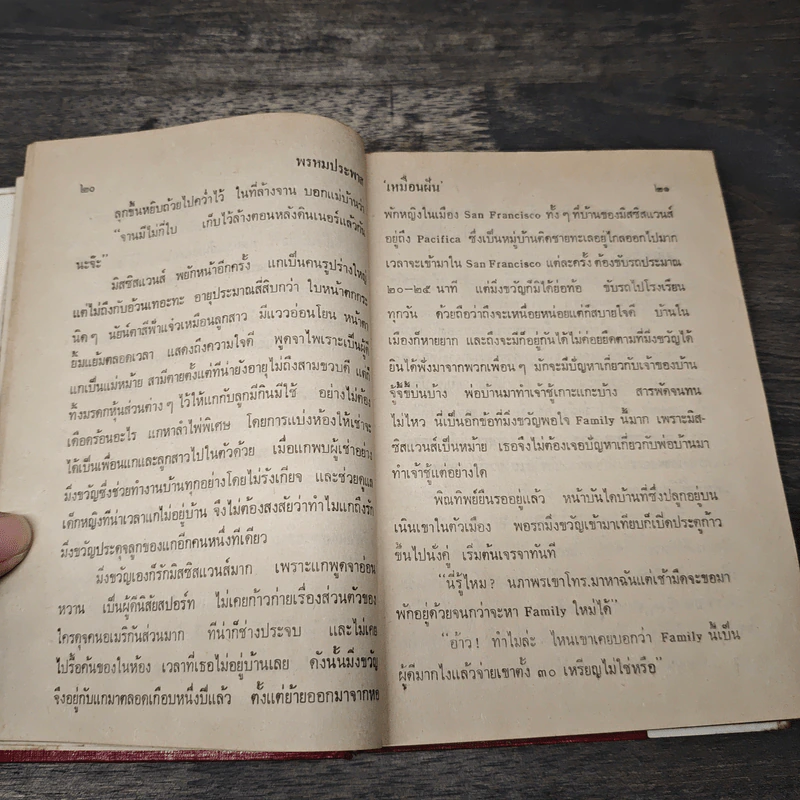 ๒๐
พรหมประพาส
ลูกขึ้นหยิบถ้วยไปคว่ำไว้ ในที่ล้างจาน บอกแม่บ้านว่า
“จานมีไม่กี่ใบ เก็บไว้ล้างตอนหลังดินเนอร์แล้วกัน
นะจ๊ะ”
มิสซิสแวนส์ พยักหน้าอีกครั้ง แกเป็นคนรูปร่างใหญ่
แต่ไม่ถึงกับอ้วนเทอะทะ อายุประมาณสี่สิบกว่า ใบหน้าตกกระ
นิดๆ นัยน์ตาสีฟ้าแจ๋วเหมือนลูกสาว มีแววอ่อนโยน หน้าตา
ยิ้มแย้มตลอดเวลา แสดงถึงความใจดี พูดจาไพเราะเป็นผู้ดี
แกเป็นแม่หม้าย สามีตายตั้งแต่ทีน่ายังอายุไม่ถึงสามขวบดี แต่ก็
ทิ้งมรดกหุ้นส่วนต่างๆ ไว้ให้แกกับลูกมีกินมีใช้ อย่างไม่ต้อง
เดือดร้อนอะไร แกหาลำไพ่พิเศษ โดยการแบ่งห้องให้เช่าจะ
ได้เป็นเพื่อนแกและลูกสาวไปในตัวด้วย เมื่อแกพบผู้เช่าอย่าง
มิ่งขวัญซึ่งช่วยทำงานบ้านทุกอย่างโดยไม่รังเกียจ และช่วยดูแล
เด็กหญิงทีน่าเวลาแกไม่อยู่บ้าน จึงไม่ต้องสงสัยว่าทำไมแกถึงรัก
มิ่งขวัญประดุจลูกของแกอีกคนหนึ่งทีเดียว
มิ่งขวัญเองก็รักมิสซิสแวนส์มาก เพราะแกพูดจาอ่อน
หวาน เป็นผู้ดีนิสัยสปอร์ท ไม่เคยก้าวก่ายเรื่องส่วนตัวของ
ใครดุจคนอเมริกันส่วนมาก ทีน่าก็ช่างประจบ และไม่เคย
ไปรื้อค้นของในห้อง เวลาที่เธอไม่อยู่บ้านเลย ดังนั้นมิ่งขวัญ
จึงอยู่กับแกมาตลอดเกือบหนึ่งปีแล้ว ตั้งแต่ย้ายออกมาจากหอ
‘เหมือนฝัน’
๒๑
พักหญิงในเมือง San Francisco ทั้งๆ ที่บ้านของมิสซิสแวนส์
อยู่ถึง Pacifica ซึ่งเป็นหมู่บ้านติดชายทะเลอยู่ไกลออกไปมาก
เวลาจะเข้ามาใน San Francisco แต่ละครั้ง ต้องขับรถประมาณ
๒๐–๒๕ นาที แต่มิ่งขวัญก็มิได้ย่อท้อ ขับรถไปโรงเรียน
ทุกวัน ด้วยถือว่าถึงจะเหนื่อยหน่อยแต่ก็สบายใจดี บ้านใน
เมืองก็หายาก และถึงจะมีก็อยู่กันได้ไม่ค่อยยืดตามที่มิ่งขวัญได้
ยินได้ฟังมาจากพวกเพื่อนๆ มักจะมีปัญหาเกี่ยวกับเจ้าของบ้าน
จู้จี้ขี้บ่นบ้าง พ่อบ้านมาทำเจ้าชู้เกาะแกะบ้าง สารพัดจนทน
ไม่ไหว นี่เป็นอีกข้อที่มิ่งขวัญพอใจ Family นี้มาก เพราะมิส-
ซิสแวนส์เป็นหม้าย เธอจึงไม่ต้องเจอปัญหาเกี่ยวกับพ่อบ้านมา
ทำเจ้าชู้แต่อย่างใด
พิณทิพย์ยืนรออยู่แล้ว หน้าบันไดบ้านที่ซึ่งปลูกอยู่บน
เนินเขาในตัวเมือง พอรถมิ่งขวัญเข้ามาเทียบก็เปิดประตูก้าว
ขึ้นไปนั่งคู่ เริ่มต้นเจรจาทันที
“นี่รู้ไหม? นภาพรเขาโทร.มาหาฉันแต่เช้ามืดจะขอมา
พักอยู่ด้วยจนกว่าจะหา Family ใหม่ได้”
“อ้าว! ทำไมล่ะ ไหนเขาเคยบอกว่า Family นี้เป็น
ผู้ดีมากไงแล้วจ่ายเขาตั้ง ๓๐ เหรียญไม่ใช่หรือ”